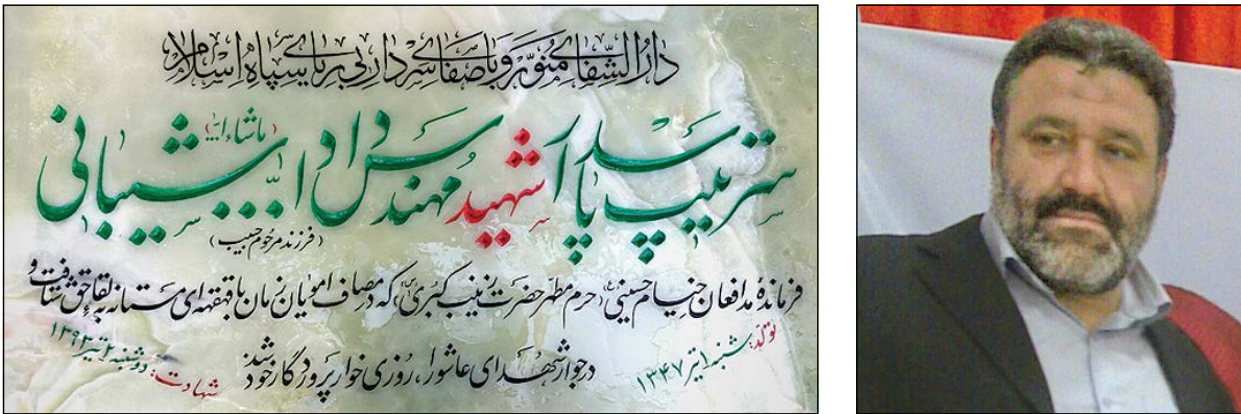 دارُ الشّفایِ مُنوّر و با صفایِ سردار بی ریایِ سپاه اسلام
سرتیپ پاسدار شهید مهندس داداللّه (ماشاءالله) شیبانی
(فرزند مرحوم حبیب)
فرماندهٔ مدافعان خیام حسینی(ع)، حرم مطهّر حضرت زینب کبری(س) که در مصاف امویان زمان با قهقهه‌ای مستانه به لقاءِ حق شتافت و
در جوار شهدای عاشورا، روزی خوار پروردگار خود شد
تولّد: شنبه ۱ تیر ۱۳۴۷
شهادت: دوشنبه ۲ تیر ۱۳۹۳